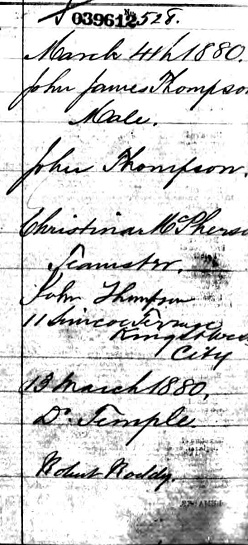 039612 No 528.
March 4th 1880.
John James Thompso
Male.
John Thompson.
Christina McPherso
Teamster.
John Thompson
11 Simcoe Terrace
King St West
City
13 March 1880.
Dr Temple.
Robert Roddy.